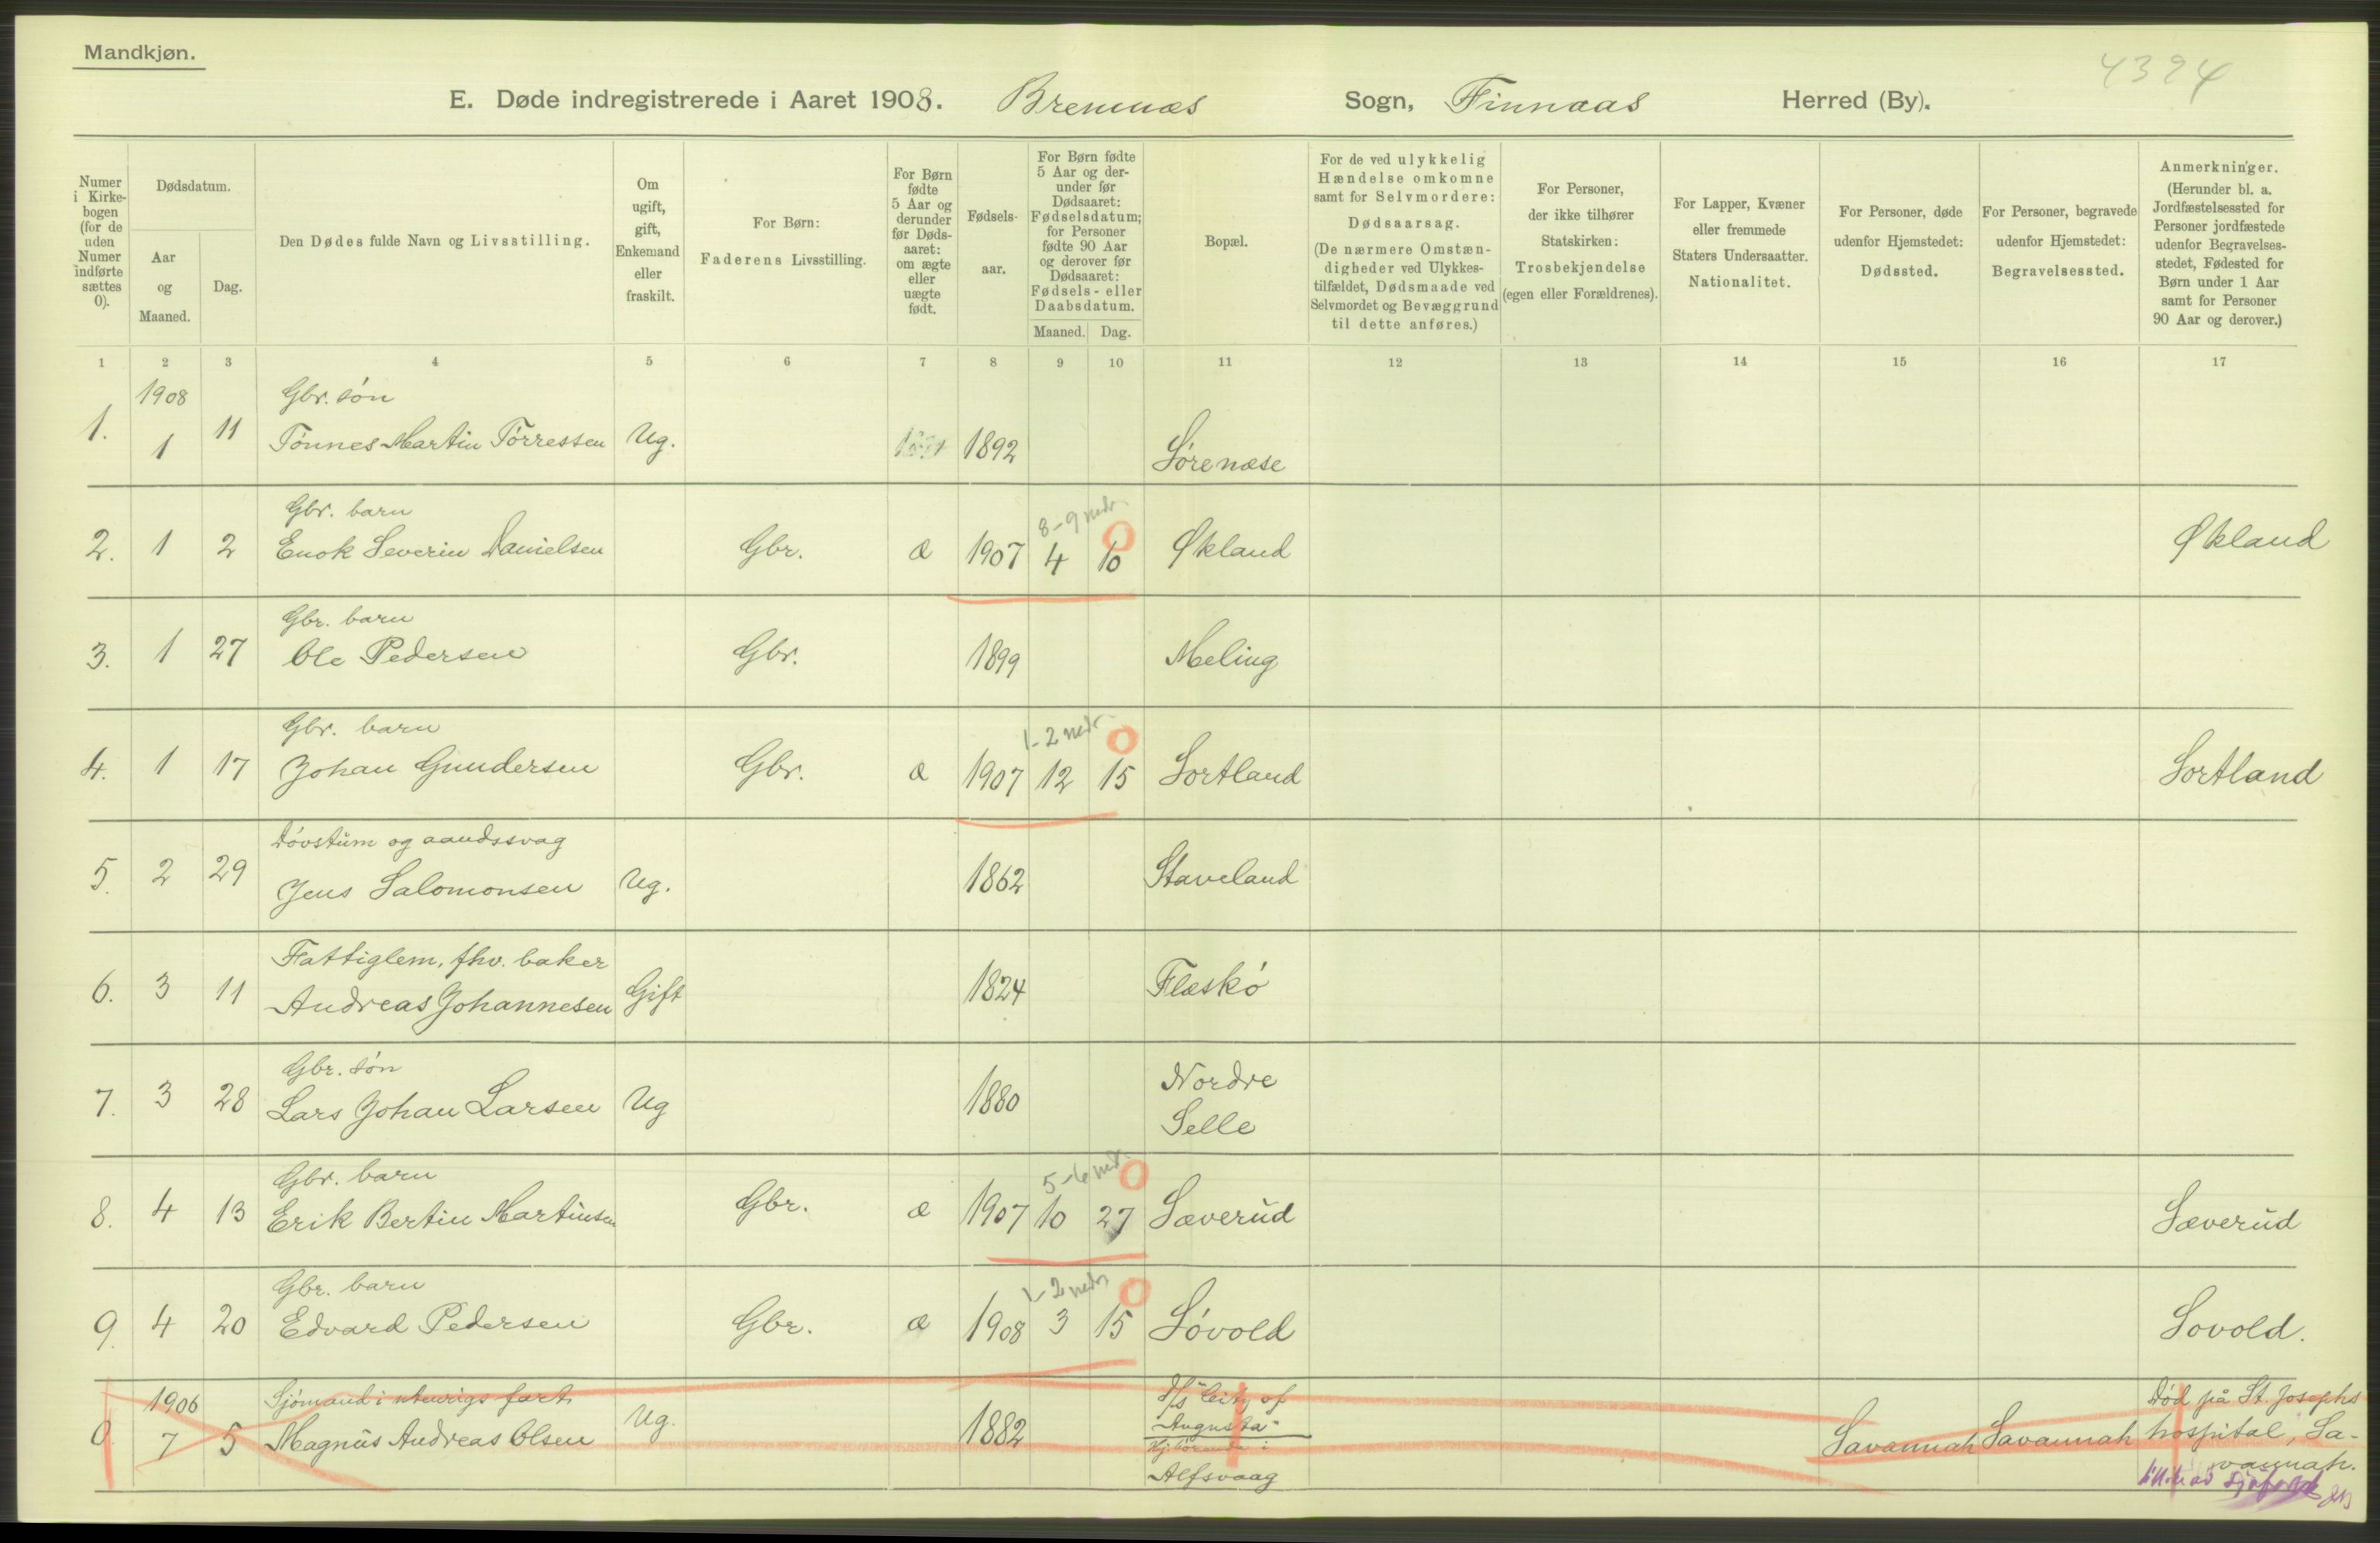 Mandkjøn.
4394
E. Døde indregistrerede i Aaret 1908. Bremnæs Sogn, Finnaas Herred (By).
Numer i Kirke-bogen (for de uden Numer indførte sættes 0).
Dødsdatum.
Aar og Maaned.
Dag.
Den Dødes fulde Navn og Livsstilling.
Om ugift, gift, Enkemand eller fraskilt.
For Børn: Faderens Livsstilling.
For Børn fødte 5 Aar og derunder før Døds-aaret: om ægte eller uægte født.
Fødsels-aar.
For Børn fødte 5 Aar og der-under før Dødsaaret: Fødselsdatum; for Personer fødte 90 Aar og derover før Dødsaaret: Fødsels- eller Daabsdatum.
Maaned. Dag.
Bopæl.
For de ved ulykkelig Hændelse omkomne samt for Selvmordere: Dødsaarsag. (De nærmere Omstæn-digheder ved Ulykkes-tilfældet, Dødsmaade ved Selvmordet og Bevæggrund til dette anføres.)
For Personer, der ikke tilhører Statskirken: Trosbekjendelse (egen eller Forældrenes).
For Lapper, Kvæner eller fremmede Staters Undersaatter. Nationalitet.
For Personer, døde udenfor Hjemstedet: Dødssted.
For Personer, begravede udenfor Hjemstedet: Begravelsessted.
Anmerkninger. (Herunder bl. a. Jordfæstelsessted for Personer jordfæstede udenfor Begravelses-stedet, Fødested for Børn under 1 Aar samt for Personer 90 Aar og derover.)
1 2 3 4 5 6 7 8 9 10 11 12 13 14 15 16 17
1908 Gbr. søn
1. 1 11 Tönnes Martin Törressen Ug. 1892 Sørenæse
Gbr. barn 8-9 mdr. 0
2. 1 2 Enok Severin Danielsen Gbr. æ 1907 4 10 Økland Økland
Gbr. barn
3. 1 27 Ole Pedersen Gbr. 1899 Meling
Gbr. barn 1-2 mdr. 0
4. 1 17 Johan Gundersen Gbr. æ 1907 12 15 Sortland Sortland
Døvstum og aandssvag
5. 2 29 Jens Salomonsen Ug. 1862 Staveland
Fattiglem, fhv. baker
6. 3 11 Andreas Johannesen Gift 1824 Flæskö
Gbr. søn
7. 3 28 Lars Johan Larsen Ug 1880 Nordre Selle
Gbr. barn 5-6 md. 0
8. 4 13 Erik Bertin Martinsen Gbr. æ 1907 10 27 Sæverud Sæverud
Gbr. barn 1-2 mdr 0
9. 4 20 Edvard Pedersen Gbr. æ 1908 3 15 Sóvold Sovold.
1906 Sjömand i utenrigs fart. "City of Død på St. Josephs
0 7 5 Magnus Andreas Olsen Ug. 1882 Augusta" Savannah Savannah hospital, Sa-
i vannah.
Alfsvaag